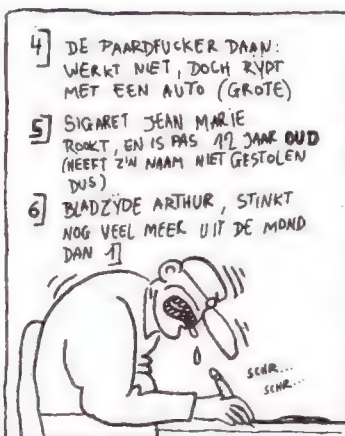 4] DE PAARDFUCKER DAAN:
WERKT NIET, DOCH RYDT
MET EEN AUTO (GROTE)
5] SIGARET JEAN MARIE
ROOKT, EN IS PAS 12 JAAR OUD
(HEEFT Z'N NAAM NIET GESTOLEN
DUS)
6] BLADZYDE ARTHUR, STINKT
NOG VEEL MEER UIT DE MOND
DAN 1]
SCHR...
SCHR...